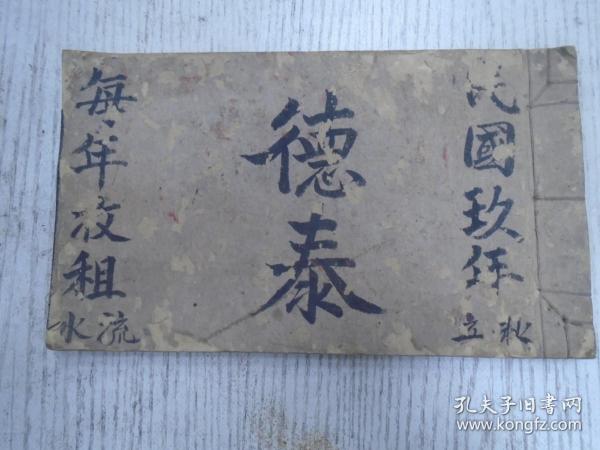 民國玖年
秋立
德泰
每年收租
流水
孔夫子旧书网
www.kongfz.com